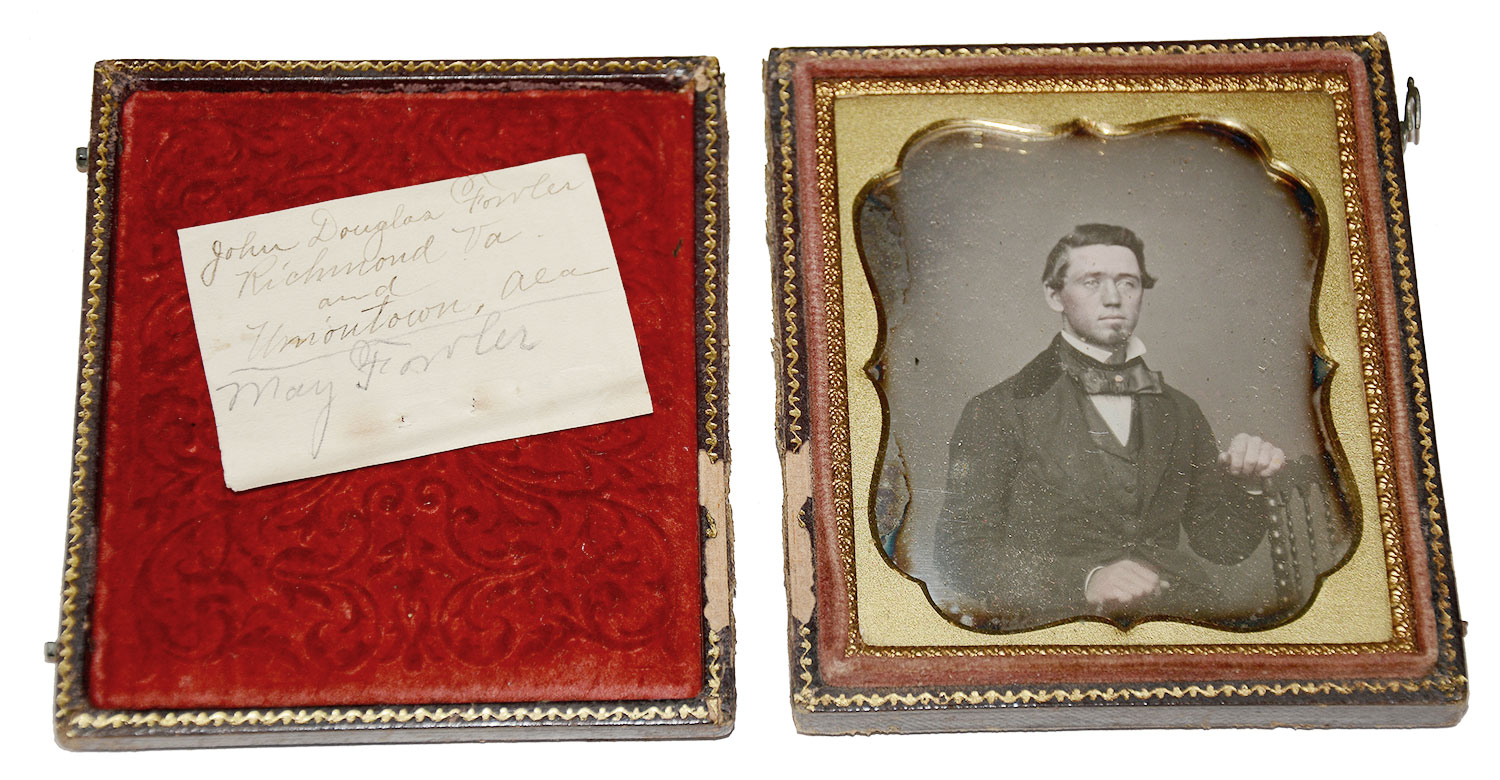 John Douglas Fowler
Richmond Va.
and
Uniontown, Ala
May Fowler